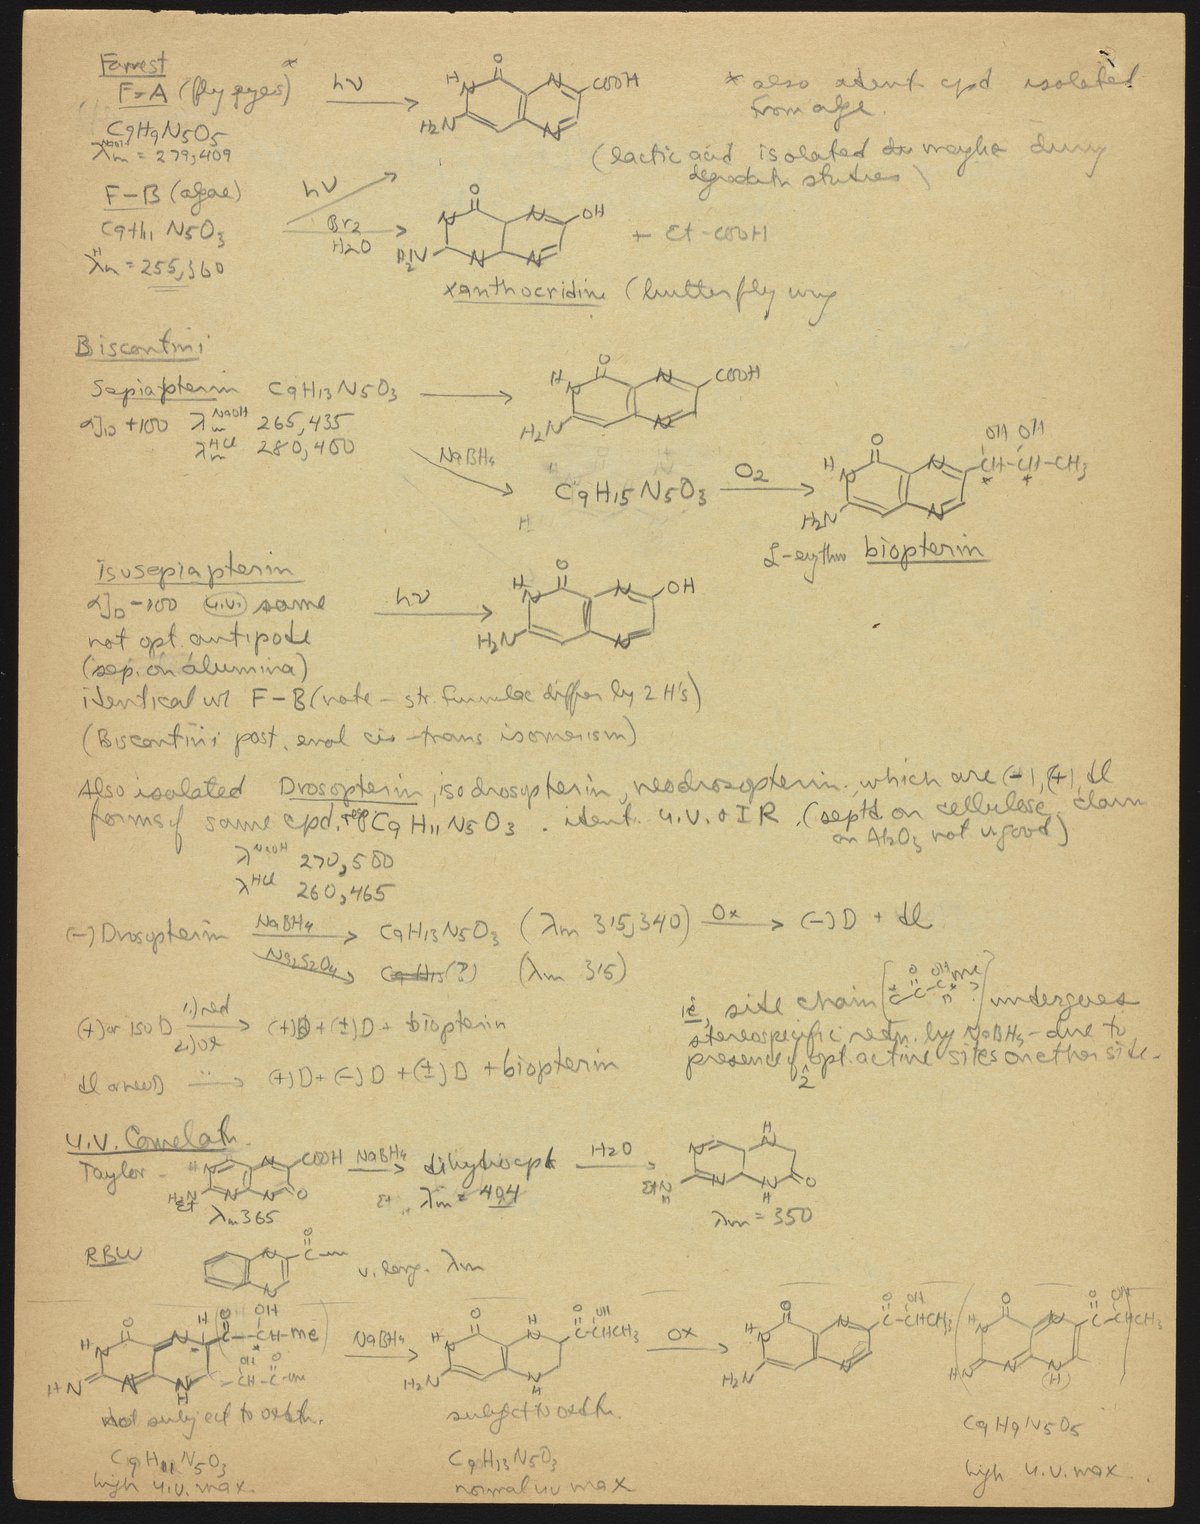 Forrest
F-A (fly eyes)*
hν
COOH
* also ident cpd isolated
from algae.
C9H9N5O5
λm NaOH = 279,409
(lactic acid isolated
degradatn studies)
F-B (algae)
C9H11N5O3
λm = 255,360
hν
Br2
H2O
OH
+ Et-COOH
H2N
xanthocridine (butterfly wing
Biscontini
Sepiapterin C9H13N5O3
α]D +100 λm NaOH 265,435
λm HCl 280,400
COOH
H2N
NaBH4
C9H15N5O3
O2
OH OH
CH-CH-CH3
* *
H2N
L-erythro biopterin
isosepiapterin
α]D -100 (u.v.) same
not opt. antipode
(sep. on alumina)
hν
OH
H2N
identical w/ F-B (note - str. formulae differ by 2 H's)
(Biscontini post. enol cis-trans isomerism)
Also isolated Drosopterin, isodrosopterin, neodrosopterin. which are (-), (+), dl
forms of same cpd. C9H11N5O3. ident. u.v. & IR. (septd on cellulose, claim
on Al2O3 not v good)
λ NaOH 270,500
λ HCl 260,465
(-) Drosopterin NaBH4 C9H13N5O3 (λm 315,340) Ox (-)D + dl
Na2S2O4 C9H15(?) (λm 315)
(+) or iso D 1.) red 2.) ox (+)D + (±)D + biopterin
dl or neoD (+)D + (-)D + (±)D + biopterin
ie, site chain undergoes
stereospecific redn. by NaBH4 - due to
presence of 2 opt. active sites on other side.
U.V. Correlatn.
Taylor - COOH NaBH4 dihydrocpt H2O
λm 365
λm = 404
λm = 350
RBW v. long. λm
NaBH4
OX
H2N
C-CHCH3
Not subject to oxdtn.
subject to oxdtn.
C9H11N5O3
high u.v. max
C9H13N5O3
normal uv max
C9H9N5O5
high u.v. max.